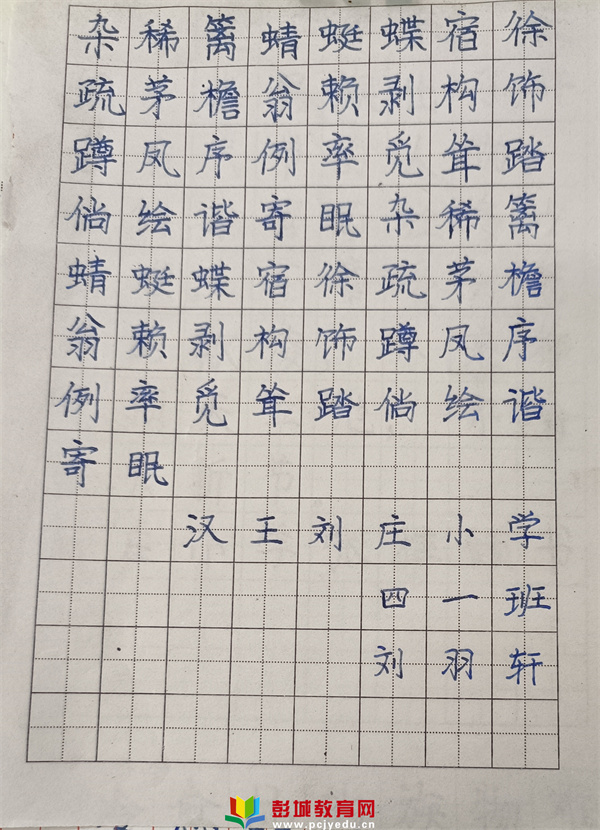 杂稀篱蜻蜓蝶宿徐
疏茅檐翁赖剥构饰
蹲凤序例率觅耸踏
倘绘谐寄眠杂稀篱
蜻蜓蝶宿徐疏茅檐
翁赖剥构饰蹲凤序
例率觅耸踏倘绘谐
寄眠
汉王刘庄小学
四一班
刘羽轩
彭城教育网
www.pcjyedu.cn